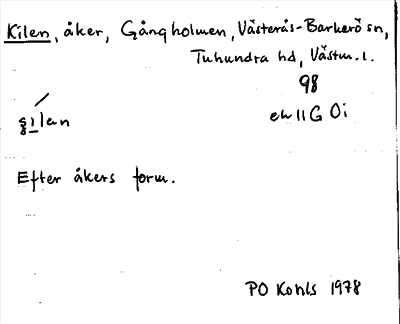 Kilen, åker, Gångholmen, Västerås-Barkarö sn,
Tuhundra hd, Västm. l.
98
ek 11 G 0i
s̨ı̱lan
Efter åkers form.
PO Kohls 1978